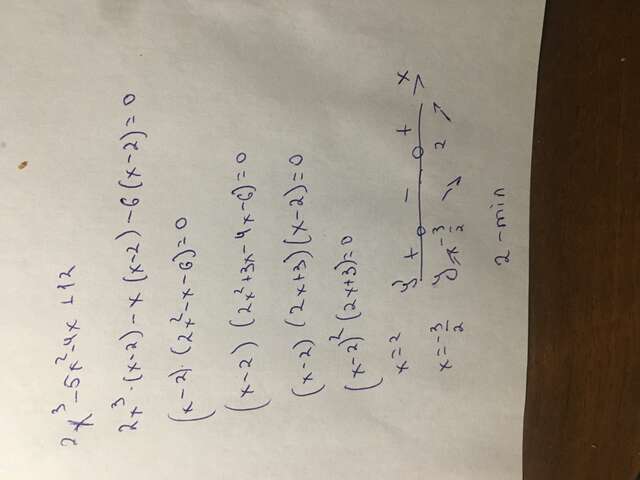 2x³-5x²-4x+12
2x³·(x-2)-x(x-2)-6(x-2)=0
(x-2)·(2x²-x-6)=0
(x-2)(2x²+3x-4x-6)=0
(x-2)(2x+3)(x-2)=0
(x-2)²(2x+3)=0
x=2
x=-3/2
y' + - + x
y ↗ x -3/2 ↘ 2 ↗
2-min